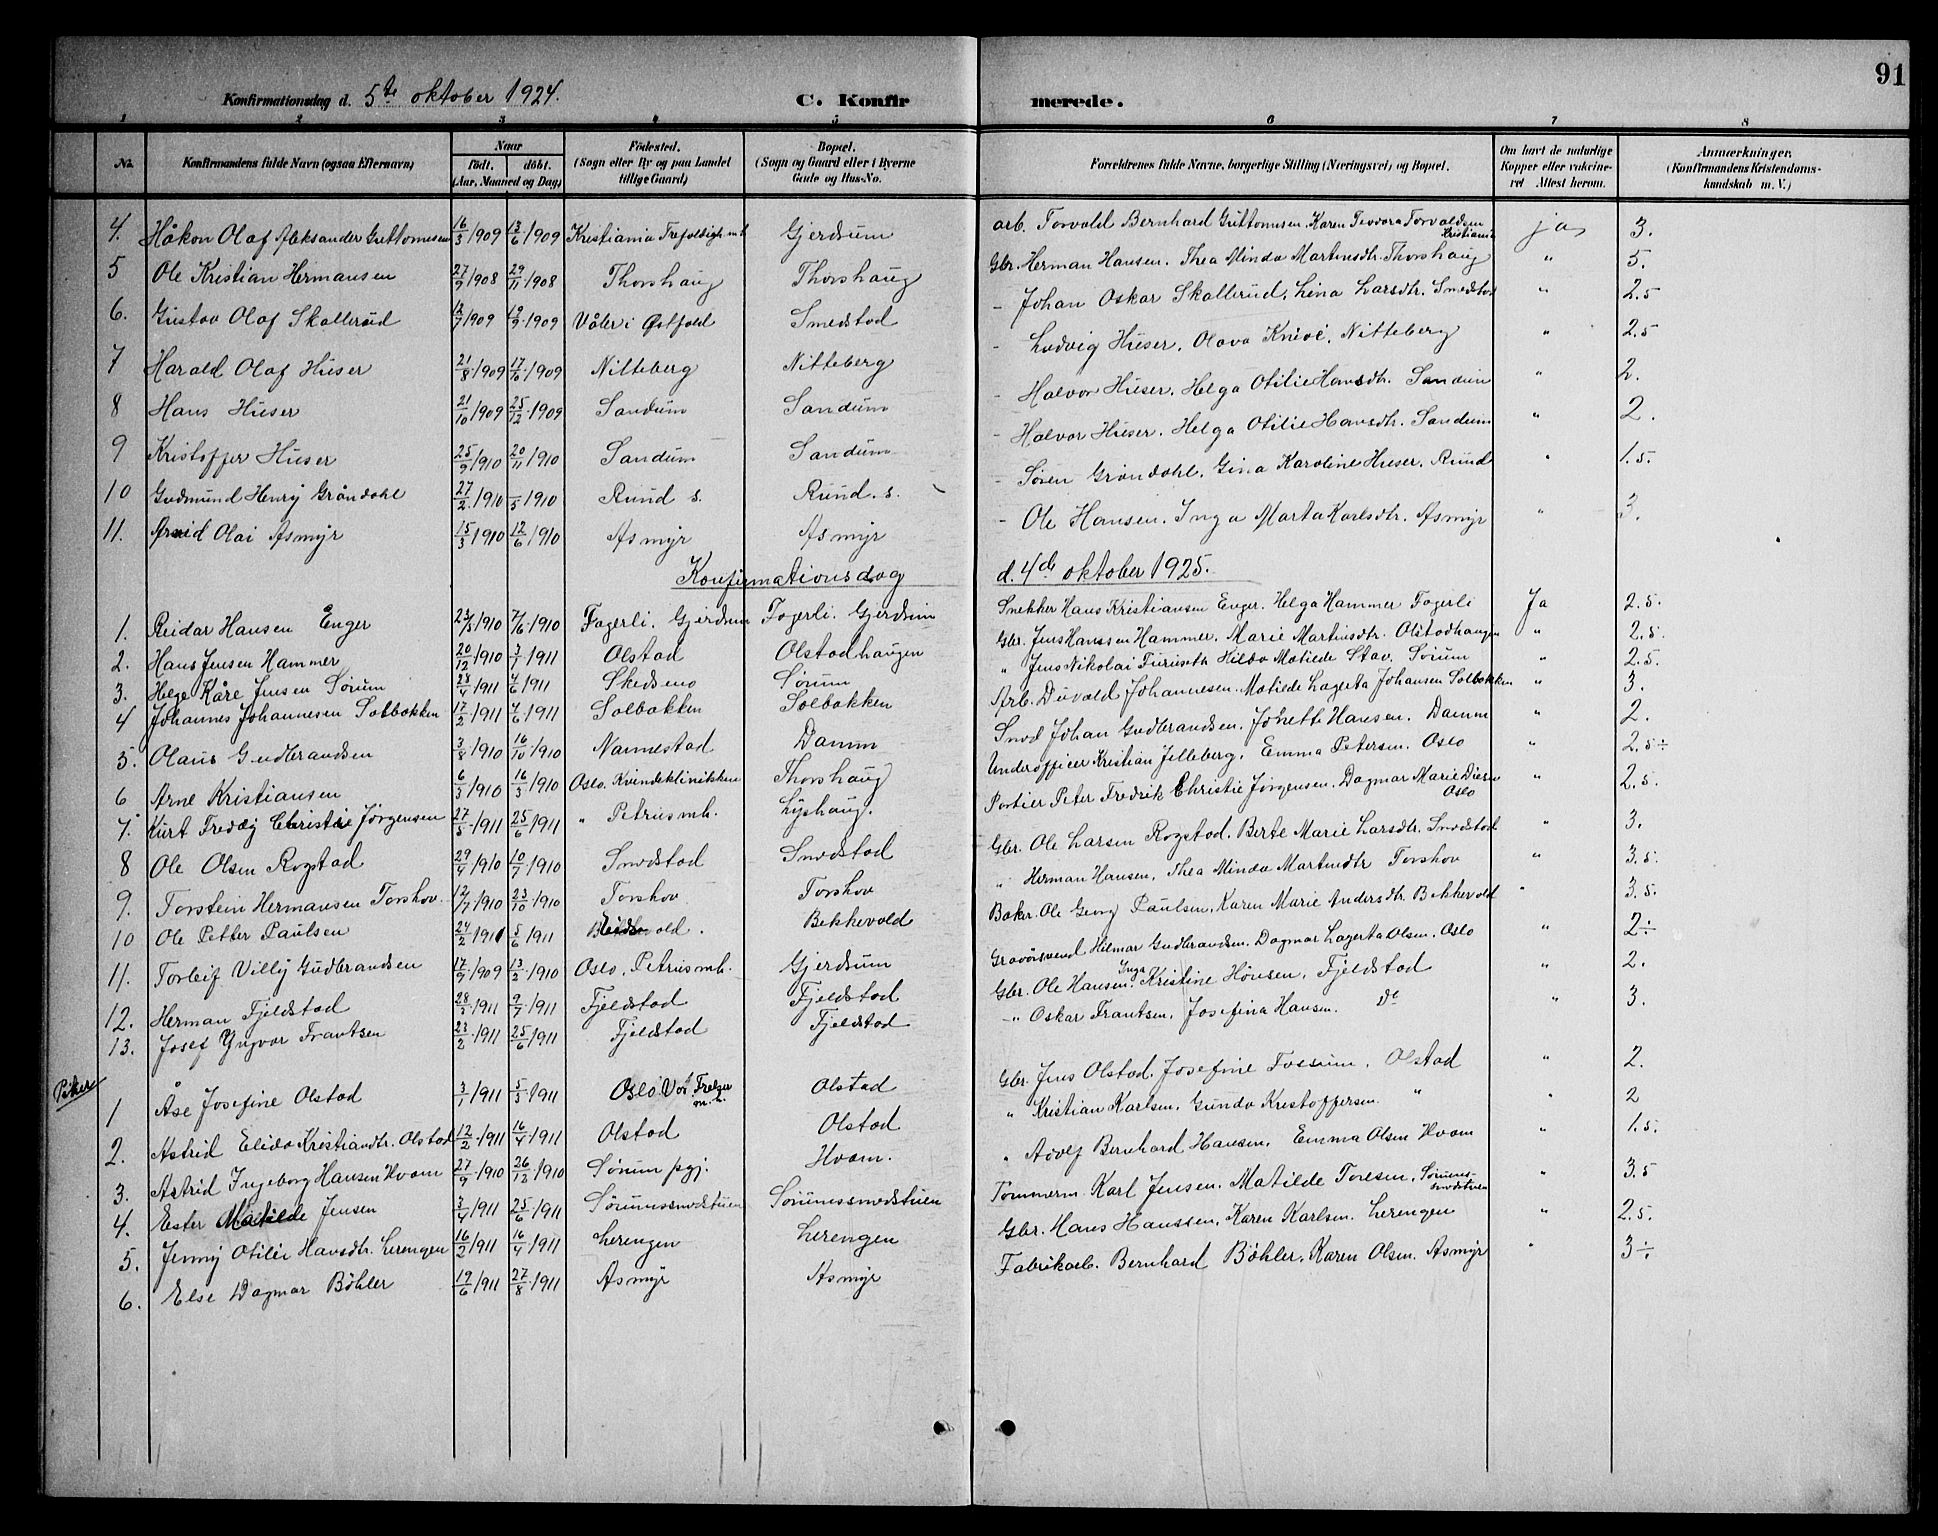 91
Konfirmationsdag d. 5te oktober 1924. C. Konfirmerede.
1 2 3 4 5 6 7 8
No. Konfirmandens fulde Navn (ogsaa Efternavn) Naar født. døbt. (Aar, Maaned og Dag) Fødested. (Sogn eller By og paa Landet tillige Gaard) Bopæl. (Sogn og Gaard eller i Byerne Gade og Hus-No. Forældrenes fulde Navne, borgerlige Stilling (Næringsvei) og Bopæl. Om havt de naturlige Kopper eller vaksineret Attest herom. Anmærkninger. (Konfirmandens Kristendomskundskab m. V.)
4. Håkon Olaf Aleksander Guttormsen 16/3 1909 13/6 1909 Kristiania Trefoldigh. m. Gjerdrum arb. Torvald Bernhard Guttormsen Karen Teodora Torvaldsen Kristiania ja 3.
5 Ole Kristian Hermansen 27/9 1908 29/11 1908 Thorshaug Thorshaug Gbr. Herman Hansen. Thea Minda Martinsdtr. Thorshaug " 5.
6. Gustav Olaf Skallerud 12/7 1909 19/9 1909 Våler i Østfold Smedstad - Johan Oskar Skallerud, Lina Larsdtr. Smedstad " 2.5
7 Harald Olaf Huser 21/8 1909 17/10 1909 Nitteberg Nitteberg - Ludvig Huser. Olava Knive, Nitteberg " 2.5
8 Hans Huser 21/10 1909 25/12 1909 Sandum Sandum - Halvor Huser, Helga Otilie Hansdtr. Sandum " 2.
9 Kristoffer Huser 25/9 1910 20/11 1910 Sandum Sandum - Halvor Huser. Helga Otilie Hansdtr. Sandum " 2.
10 Gudmund Henry Grøndahl 27/2 1910 /5 1910 Rund s. Rund. s. - Søren Grøndahl, Gina Karoline Huser. Rund " 1.5.
11. Arvid Olai Asmyr 15/3 1910 12/6 1910 Asmyr Asmyr - Ole Hansen. Inga Marta Karlsdtr. Asmyr " 3.
Konfirmationsdag d. 4de oktober 1925.
1. Reidar Hansen Enger 23/5 1910 7/6 1910 Fagerli. Gjerdrum Fagerli. Gjerdrum Snekker Hans Kristiansen Enger. Helga Hammer Fagerli Ja 2.5.
2. Hans Jensen Hammer 20/12 1910 3/1 1911 Olstad Olstadhaugen Gbr. Jens Hanssen Hammer. Marie Martinsdtr. Olstadhaugen " 2.5.
3. Helge Kåre Jensen Sørum 28/4 1911 4/6 1911 Skedsmo Sørum " Jens Nikolai Furuseth Hilda Matilde Stav. Sørum " 2.5.
4 Johannes Johannesen Solbakken 17/2 1911 4/6 1911 Solbakken Solbakken Arb. Duvald Johannesen. Matilde Lagerta Johansen Solbakken " 3.
5. Olaus Gudbrandsen 3/8 1910 16/10 1910 Nannestad Damm Smed Johan Gudbrandsen, Jonette Hansen. Damm " 2.
6 Arne Kristiansen 6/3 1910 16/5 1910 Oslo. Kvindeklinikken Thorshaug Underofficer Kristian Jelleberg. Emma Petersen. Oslo " 2.5÷
7. Kurt Freddy Christie Jørgensen 27/5 1911 25/6 1911 " Petrus mh. Lyshaug. Portier Peter Fredrik Christie Jørgensen. Dagmar Marie Diesen Oslo " 2.5.
8 Ole Olsen Rogstad 29/4 1910 10/7 1910 Smedstad Smedstad Gbr. Ole Larsen Rogstad. Berte Marie Larsdtr. Smedstad " 3.
9. Torstein Hermansen Torshov. 12/7 1910 23/10 1910 Torshov Torshov " Herman Hansen, Thea Minda Martinsdtr Torshov " 3.5.
10 Ole Petter Paulsen 24/2 1911 5/6 1911 Eidsvold. Bekkevold Baker. Ole Georg Paulsen. Karen Marie Andersdtr. Bekkevold " 3.5.
11. Torleif Villy Gudbrandsen 17/9 1909 13/2 1910 Oslo, Petrus mh. Gjerdrum Gravørsvend Hilmar Gudbrandsen. Dagmar Lagerta Olsen. Oslo " 2÷
12. Herman Fjeldstad 28/3 1911 9/7 1911 Fjeldstad Fjeldstad Gbr. Ole Hansen. Inga Kristine Hønsen. Fjeldstad " 2.
13. Josef Yngvar Frantsen 23/2 1911 25/6 1911 Fjeldstad Fjeldstad - " Oskar Frantsen, Josefina Hansen. do " 3.
Piker
1 Åse Josefine Olstad 3/1 1911 5/3 1911 Oslo Vor Frelser m.h. Olstad Gbr. Jens Olstad. Josefine Fossum. Olstad " 2.
2. Astrid Elida Kristiandtr. Olstad 12/2 1911 16/4 1911 Olstad Olstad " Kristian Karlsen, Gunda Kristoffersen. " " 2
3. Astrid Ingeborg Hansen Hvam 27/9 1910 26/12 1910 Sørum pgj. Hvam. " Adolf Bernhard Hansen. Emma Olsen Hvam " 1.5.
4. Ester Matilde Jensen 3/4 1911 25/6 1911 Sørumssmedstuen Sørumssmedstuen Tømmerm. Karl Jensen. Matilde Toresen, Sørumssmedstuen " 3.5
5. Jenny Otilie Hansdtr. Lerengen 16/2 1911 16/4 1911 Lerengen Lerengen Gbr. Hans Hanssen, Karen Karlsen. Lerengen " 2.5.
6. Else Dagmar Bøhler 19/6 1911 27/8 1911 Asmyr Asmyr Fabrikarb. Bernhard Bøhler. Karen Olsen. Asmyr " 3÷